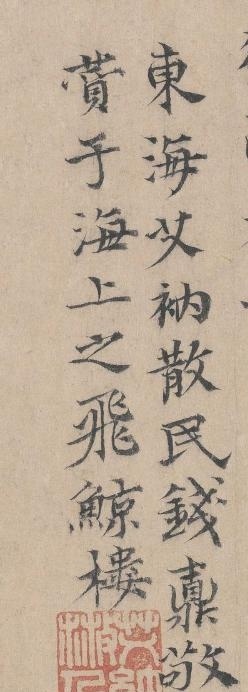 東海艾衲散民錢鼒敬
賞于海上之飛鯨樓